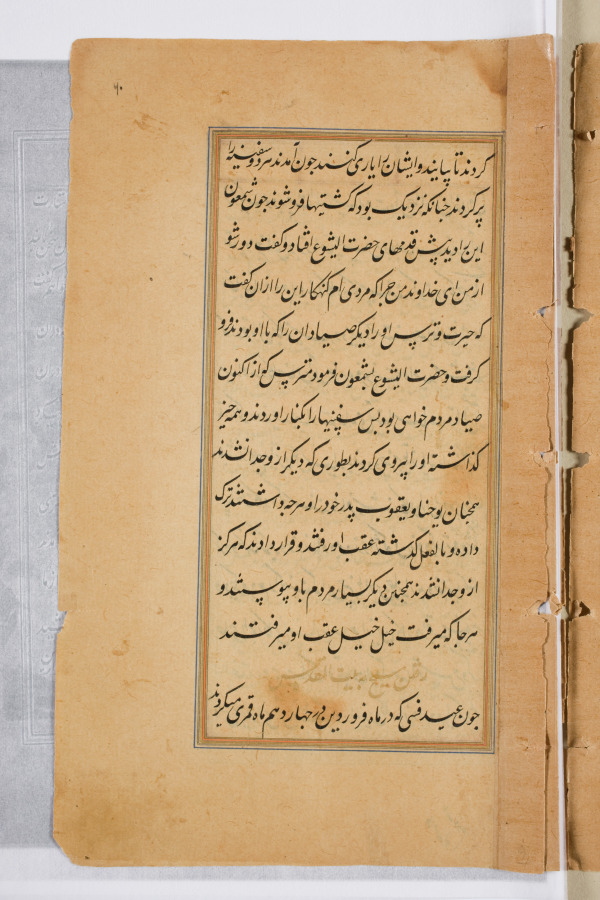 ۶۰
کردند تا بیایند و ایشان را یاری کنند جون آمدند هر دو سفینه را
پر کردند جنانکه نزدیک بود که کشتیها فرو شوند جون شمعون
این را دید پیش قدمهای حضرت الیشوع افتاد و کفت دور شو
از من ای خداوند من جرا که مردی ام کنهکار این را ازان کفت
که حیرت و ترس او را دیکر صیادان را که با او بودند فرو
کرفت و حضرت الیشوع بشمعون فرمود مترس که از اکنون
صیاد مردم خواهی بود بس سفینها را بکنار اوردند و همه جیز
کذاشته او را پیروی کردند بطوری که دیکر ازو جدا نشدند
همجنان یوحنا و یعقوب پدر خود را و هرجه داشتند ترک
داده و ما بفعل کذشته عقب او رفتند و قرار دادند که هرکز
ازو جدا نشدند همجنین دیکر بسیار مردم باو پیوستند و
هر جا که میرفت خیل خیل عقب او میرفتند
رفتن مسیح به بیت المقدس
جون عید فسی که در ماه فروردین در جهاردهم ماه قمری میکردند